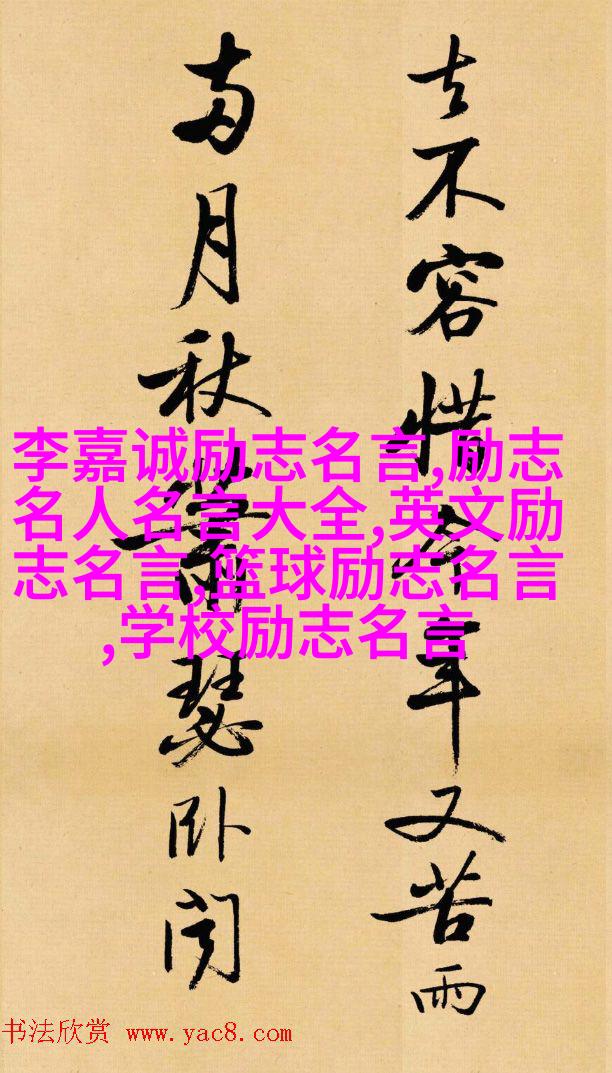 去不容惜今年又苦雨
兩月秋蕭瑟卧聞
李嘉诚励志名言,励志
名人名言大全,英文励
志名言,篮球励志名言
,学校励志名言
书法欣赏 www.yac8.com